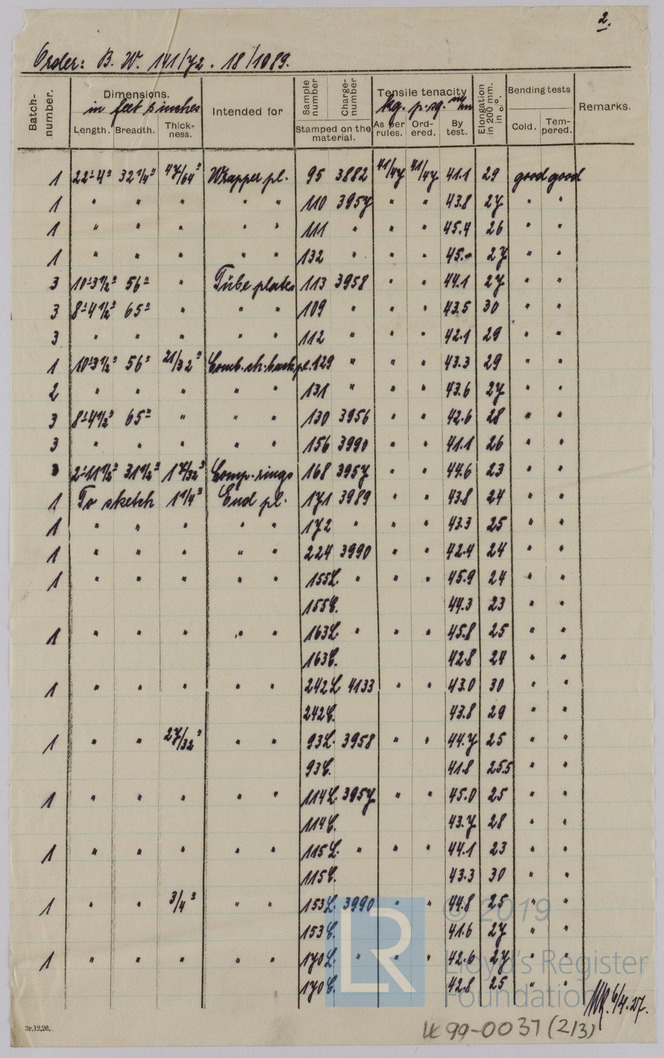 2.
Order: B. W. 141/72. 18/1089.
Batch-number. Dimensions. in feet & inches Length. Breadth. Thick-ness. Intended for Sample number Charge-number Stamped on the material. Tensile tenacity kg. p. sq. mm As per rules. Ord-ered. By test. Elongation in 200 mm. in %. Bending tests Cold. Tem-pered. Remarks.
1 22-4" 32 1/4" 47/64" Wrapper pl. 95 3882 41/47 41/47 41.1 29 good good
1 " " " " " 110 3957 " " 43.8 27 " "
1 " " " " " 111 " " " 45.4 26 " "
1 " " " " " 132 " " " 45.- 27 " "
3 10-3 1/2" 56" " Tube plates 113 3958 " " 44.1 27 " "
3 8-4 1/2" 65" " " " 109 " " " 43.5 30 " "
3 " " " " " 112 " " " 42.1 29 " "
1 10-3 1/2" 56" 21/32" Comb. ch. back pl. 129 " " " 43.3 29 " "
2 " " " " " 131 " " " 43.6 27 " "
3 8-4 1/2" 65" " " " 130 3956 " " 42.6 28 " "
3 " " " " " 156 3990 " " 41.1 26 " "
3 2-11 1/2" 31 1/2" 1 7/32" Comp. rings 168 3957 " " 44.6 23 " "
1 To sketch 1 1/4" End pl. 171 3989 " " 43.8 24 " "
1 " " " " " 172 " " " 43.3 25 " "
1 " " " " " 224 3990 " " 42.4 24 " "
1 " " " " " 155L. " " " 45.9 24 " "
155C. 44.3 23 " "
1 " " " " " 163L " " " 45.8 25 " "
163C. 42.8 24 " "
1 " " " " " 242L 4133 " " 43.0 30 " "
242C. 43.8 29 " "
1 " " 27/32" " " 93L. 3958 " " 44.7 25 " "
93C. 41.8 25.5 " "
1 " " " " " 114L. 3957 " " 45.0 25 " "
114C. 43.7 28 " "
1 " " " " " 115L. " " " 44.1 23 " "
115C. 43.3 30 " "
1 " " 3/4" " " 153L 3990 " " 44.8 25 " "
153C. 41.6 27 " "
1 " " " " " 170L. " " " 42.6 27 " "
170C. 42.8 25 " "
6/4.27.
LR
© 2019
Lloyd's Register
Foundation
3c.12.26.
LC 99-0037 (2/3)